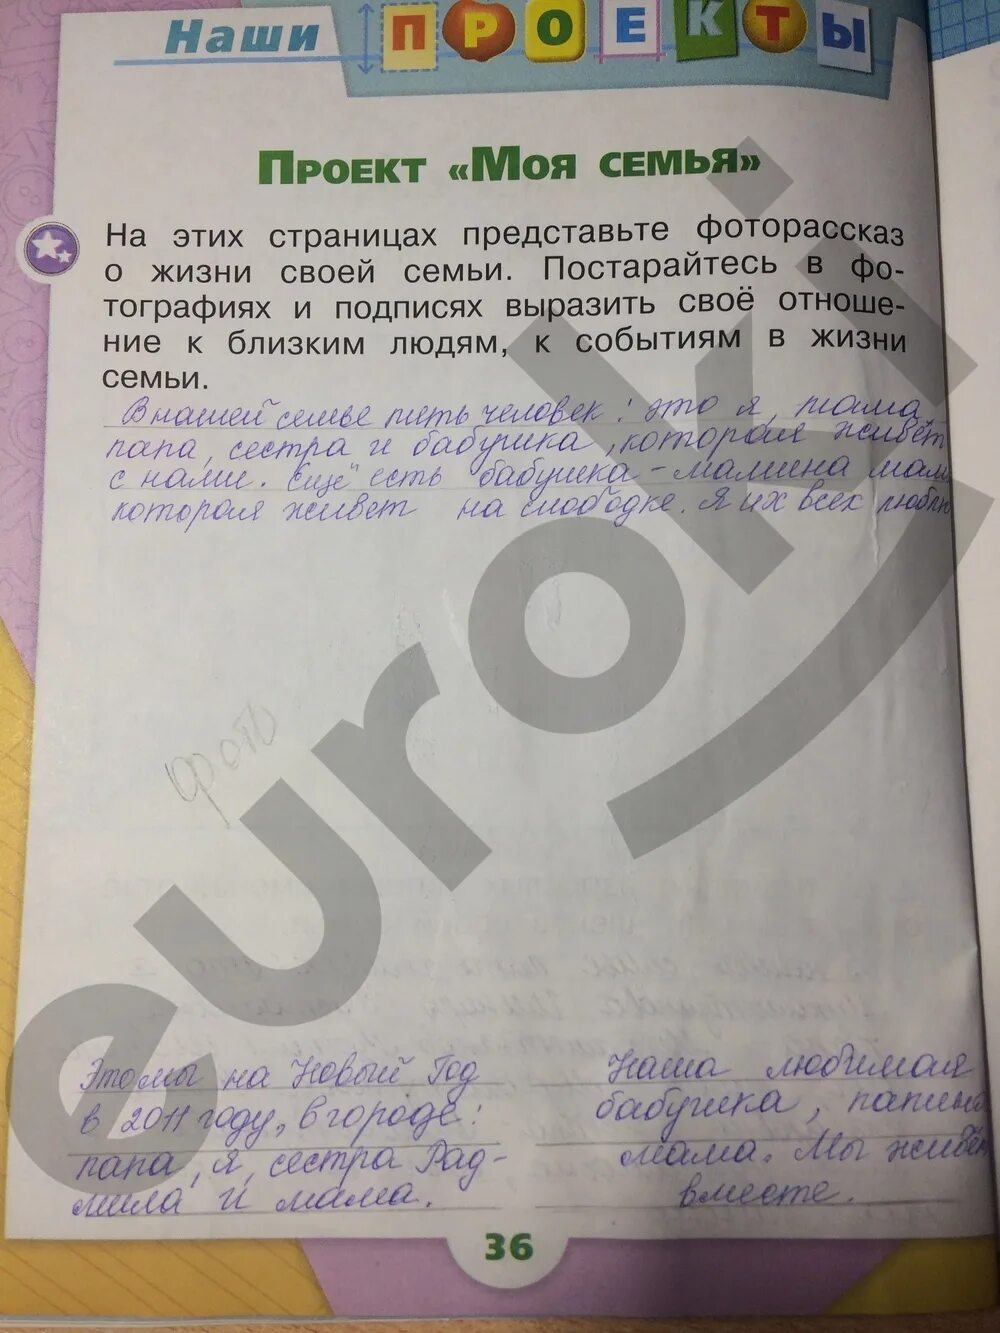 Наши ПРОЕКТЫ
Проект «Моя семья»
На этих страницах представьте фоторассказ
о жизни своей семьи. Постарайтесь в фо-
тографиях и подписях выразить своё отноше-
ние к близким людям, к событиям в жизни
семьи.
В нашей семье пять человек: это я, мама,
папа, сестра и бабушка, которая живёт
с нами. Ещё есть бабушка - мамина мам
которая живет на слободке. Я их всех люблю
фото
euroki
Это мы на Новый Год
в 2011 году, в городе:
папа, я, сестра Рад-
мила и мама.
Наша любимая
бабушка, папина
мама. Мы живём
вместе.
36